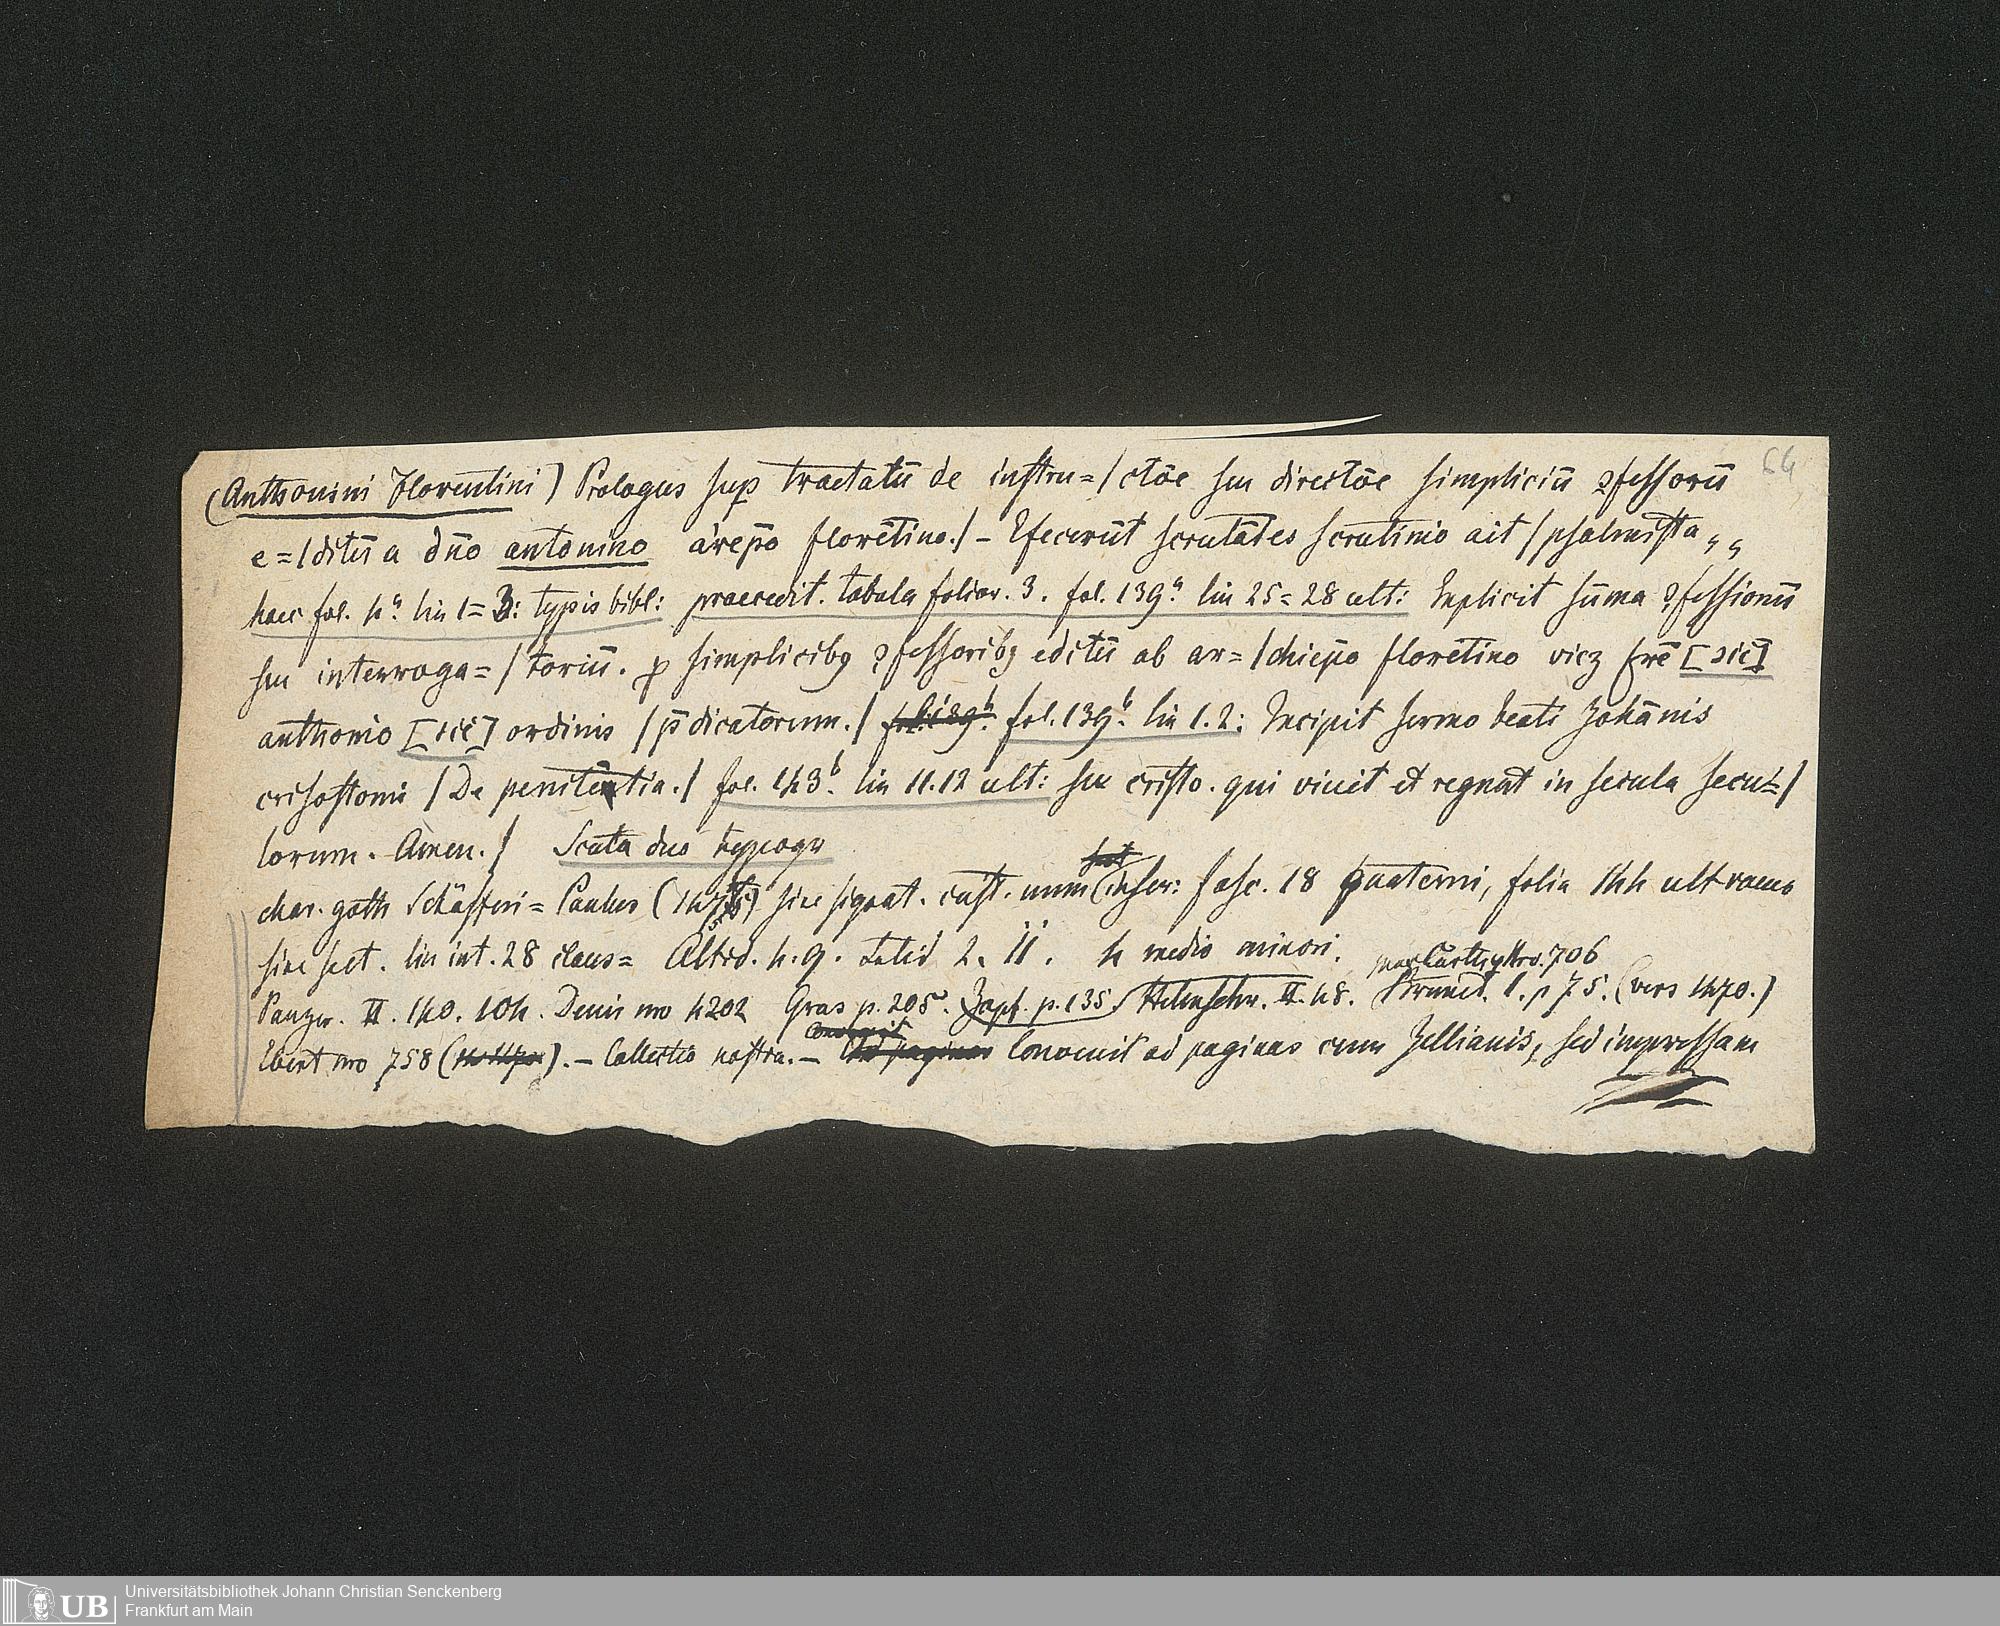 64
(Anthonini Florentini) Prologus sup tractatū de instru=/ctōe seu directōe simpliciū ꝯfessorū
e=/ditū a dn̄o antonino arēpo florētino./ - Efecerūt scrutātes scrutinio ait /psalmista
haec fol. 4ᵃ lin 1=3: typis bibl: praecedit. tabula folior. 3. fol. 139ᵃ lin 25=28 ult: Explicit sūma ꝯfessionū
seu interroga=/toriū. ꝓ simplicibꝯ ꝯfessoribꝯ editū ab ar=/chiep̄o florētino vicꝫ frē [sic]
anthonio [sic] ordinis /p̄dicatorum./ fol. 139ᵇ fol. 139ᵇ lin 1.2: Incipit sermo beati Johānis
crisostomi /De penitentia./ fol. 143ᵇ lin 11.12 ult: seu cristo. qui vivit et regnat in secula secu=/
lorum. Amen./ Scuta duo typogr
char. goth Schäfferi= Paulus sine signat. cust. num fasc. 18 quaterni, folia 144 ult vacuo
sine sect. lin int. 28 claus= Altid. 4. 9. Latid 2. 11. 4 medio minori.
MacCarthy Nro. 706
Panzer. II. 140. 104. Denis nro 4202 Gras p. 205. Zapf. p. 135. Helmschr. II. 48. Brunet. 1. p 75. (vers 1470.)
Ebert nro 758 . - Collectio nostra. - Convenit ad paginas cum Zellianis, sed impressam
UB
Universitätsbibliothek Johann Christian Senckenberg
Frankfurt am Main